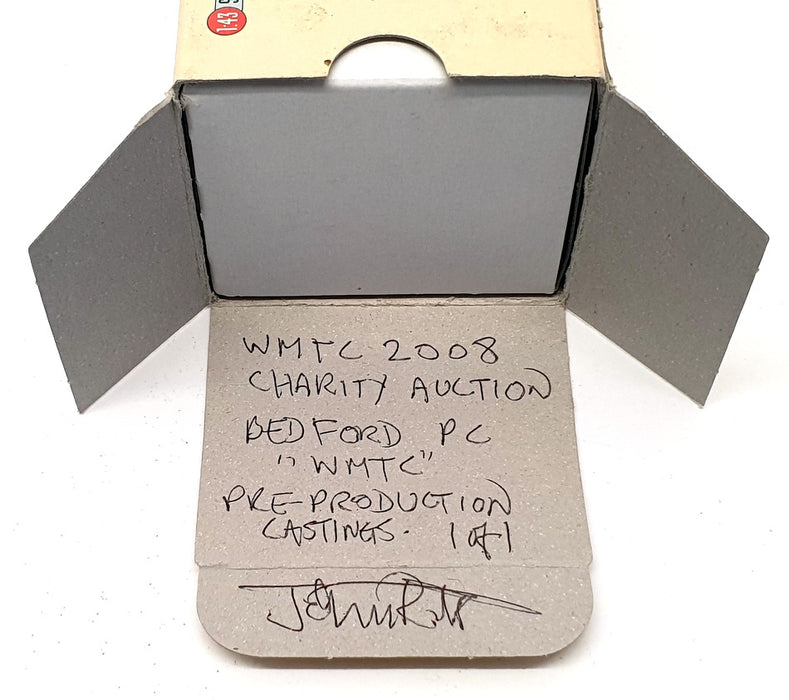 1:43
WMTC 2008
CHARITY AUCTION
BEDFORD PC
"WMTC"
PRE-PRODUCTION
CASTINGS. 1 of 1